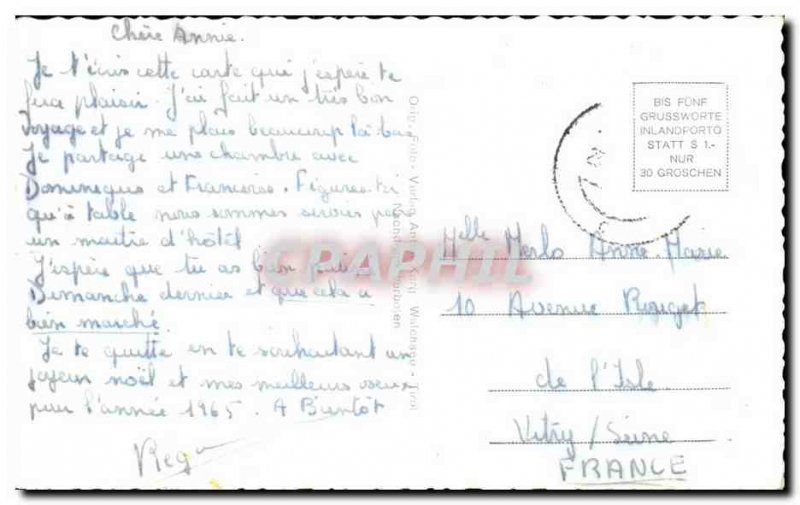 Chère Annie.
Je t'écris cette carte qui j'espère te
fera plaisir. J'ai fait un très bon
voyage et je me plais beaucoup là bas
Je partage une chambre avec
Dominique et Françoise. Figures-toi
qu'à table nous sommes servies par
un maître d'hôtel
J'espère que tu as bien
Dimanche dernier et que cela a
bien marché.
Je te quitte en te souhaitant un
joyeux noël et mes meilleurs vœux
pour l'année 1965. A Bientôt
BIS FÜNF
GRUSSWORTE
INLANDPORTO
STATT S 1.-
NUR
30 GROSCHEN
CPAPHIL
Melle Merlo Anne Marie
10 Avenue Rouget
de l'Isle
Vitry/Seine
FRANCE